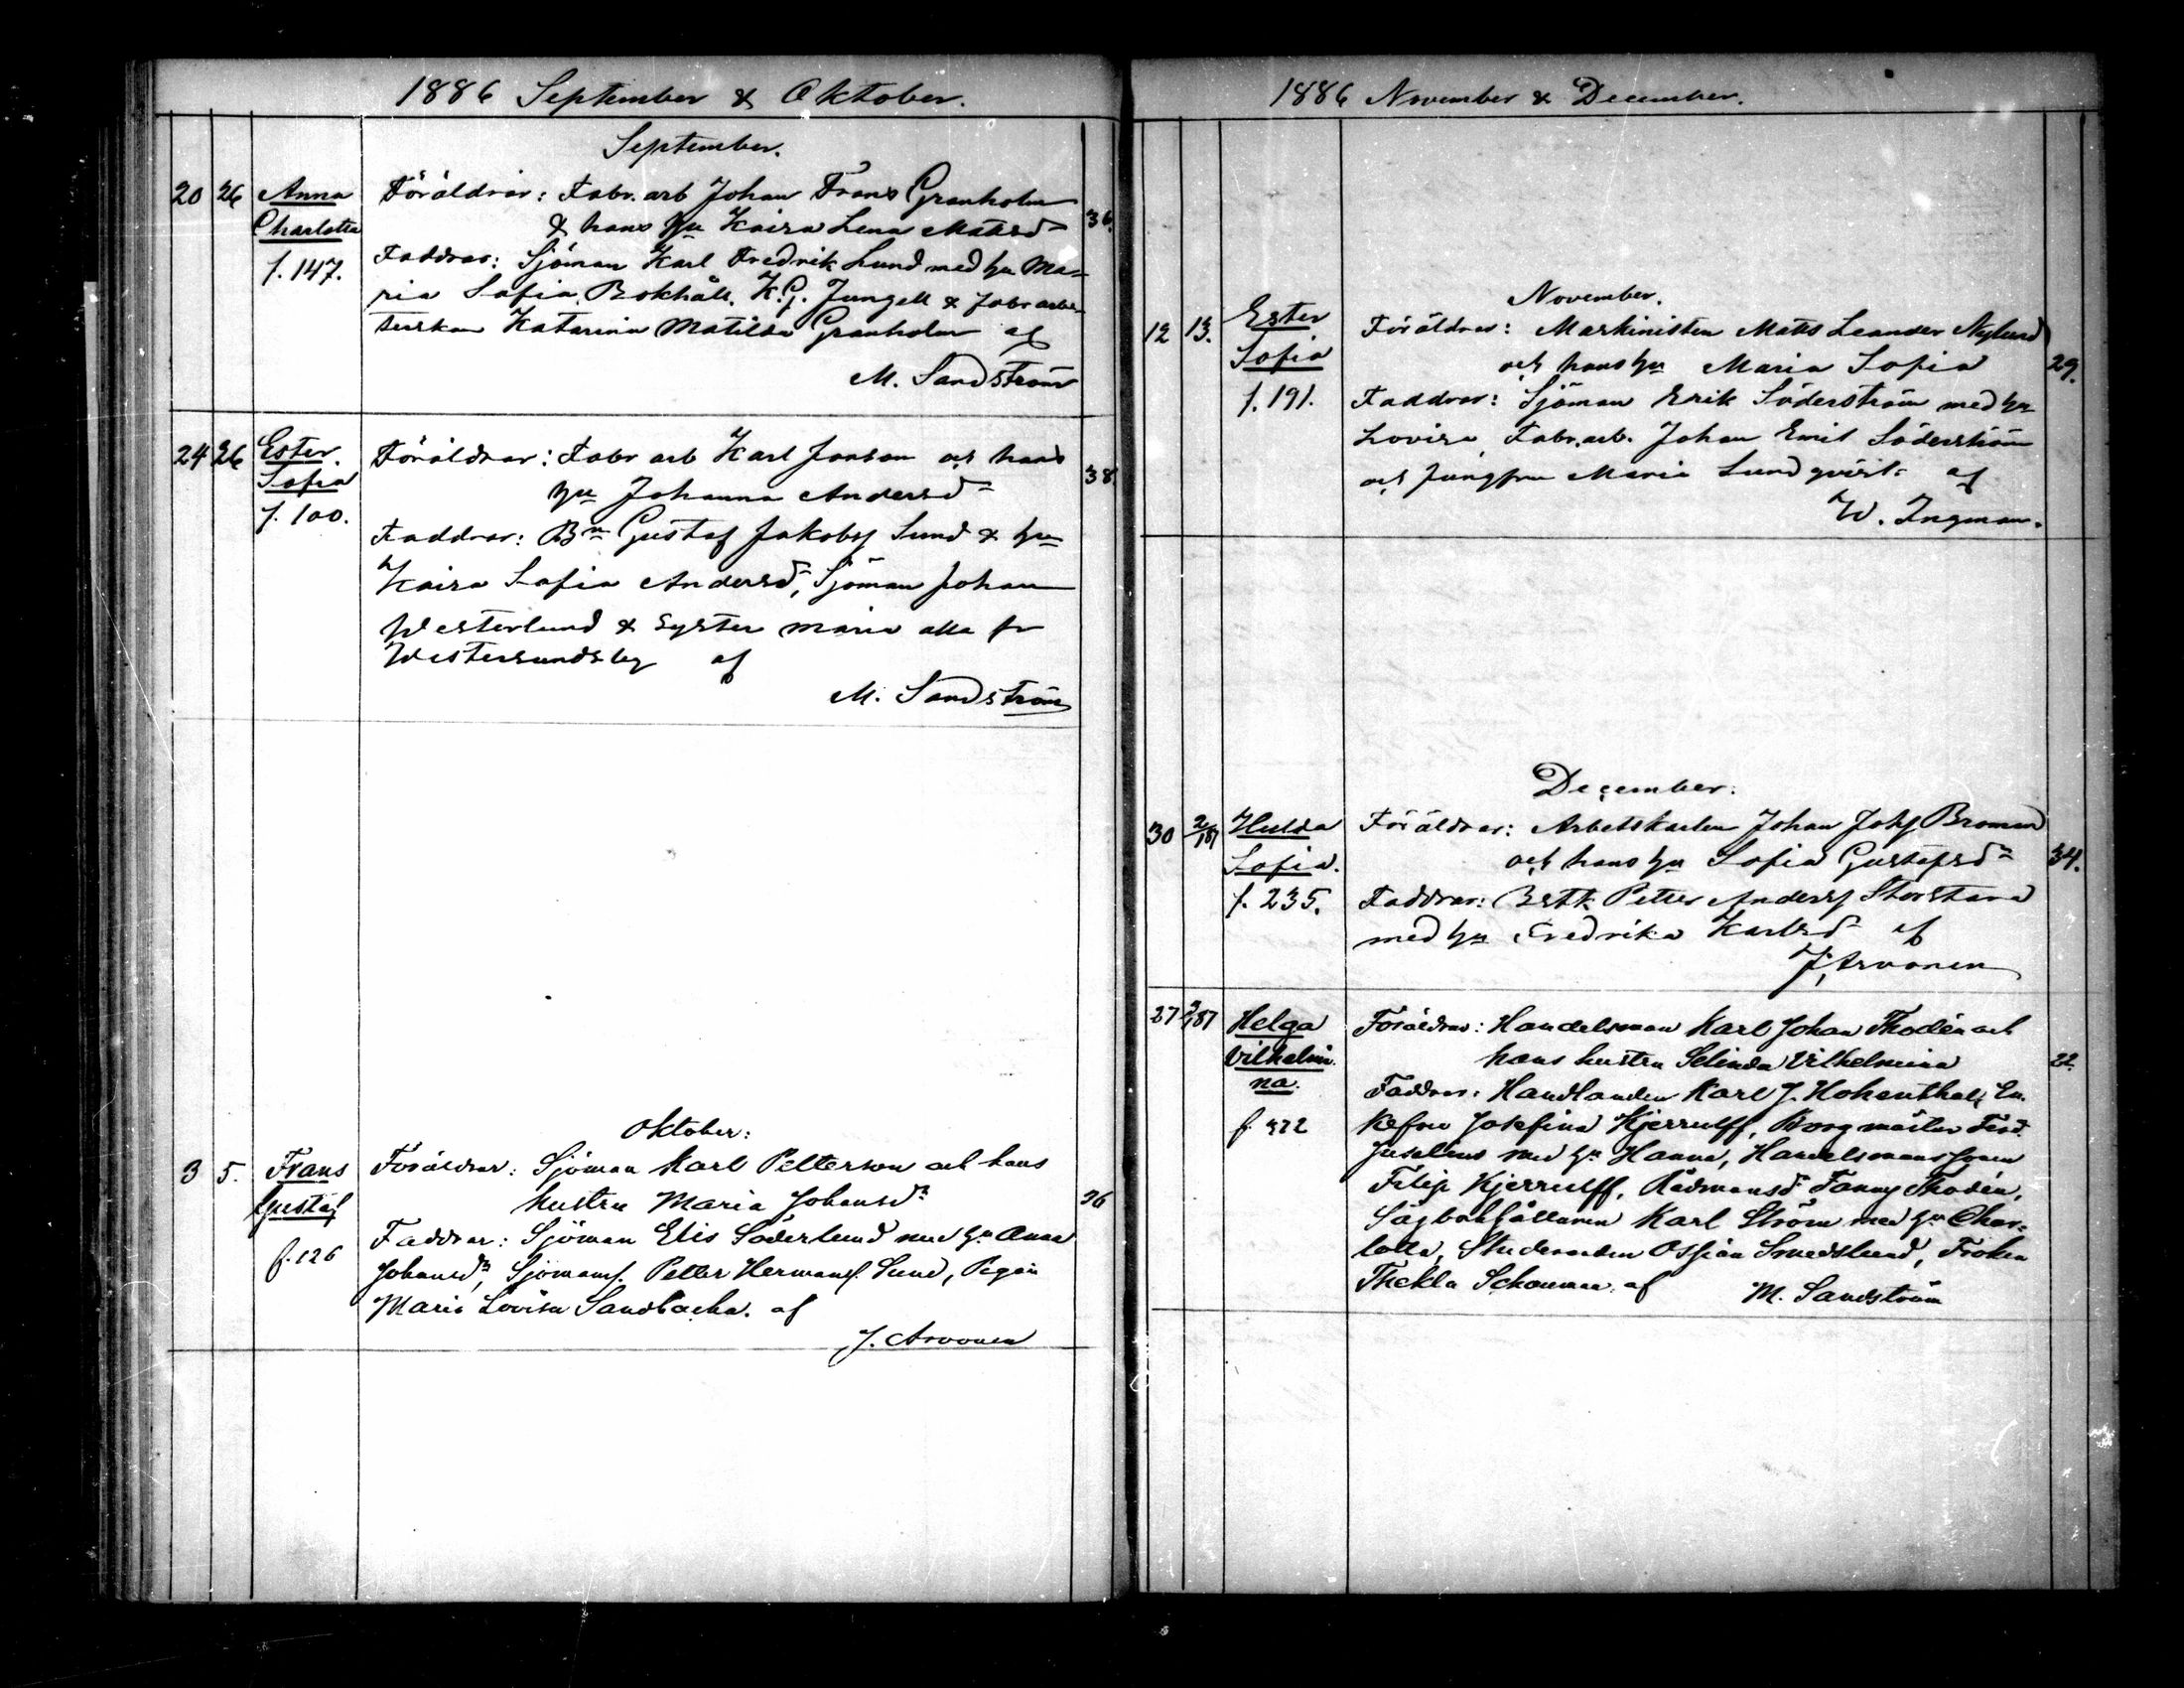 1886 September & Oktober.
September.
20 26 Anna Föräldrar: Fabr. arb Johan Frans Granholm
Charlotta & hans hu Kaisa Lena Matsd 36.
f. 147. Faddrar: Sjöman Karl Fredrik Lund med hu Ma-
ria Sofia, Bokhåll. K. G. Jungell & fabr arbe-
terskan Katarina Matilda Granholm af
M. Sandström
24 26 Ester Föräldrar: Fabr arb Karl Jonson och hans
Sofia hu Johanna Andersd 38.
f. 100.
Faddrar: Bn Gustaf Jakobss Sund & hu
Kaisa Sofia Andersd, Sjöman Johan
Westerlund & Syster Maria alla fr
Westersundsby af
M. Sandström
Oktober:
3 5. Frans Föräldrar: Sjöman Karl Petterson och hans
Gustaf hustru Maria Johansdr 26
f. 126 Faddrar: Sjöman Elis Söderlund med hu Anna
Johansdr, Sjömans. Petter Hermans. Sund, Pigan
Maria Lovisa Sandbacka. af
J. Arvonen
1886 November & December.
November.
12 13. Ester Föräldrar: Maskinisten Matts Leander Nylund
Sofia och hans hu Maria Sofia 29.
f. 191. Faddrar: Sjöman Erik Söderström med hu
Lovisa, Fabr. arb. Johan Emil Söderström
och Jungfru Maria Lundqvist af
W. Ingman.
December:
30 2/1 87 Hulda Föräldrar: Arbetskarlen Johan Johs Broman
Sofia. och hans hu Sofia Gustafsdr 34.
f. 235. Faddrar: Bstk Petter Anderss Storstara
med hu Fredrika Karlsd af
J. Arvonen
27 2/1 87 Helga Föräldrar: Handelsman Karl Johan Thodén och
Vilhelmi- hans hustru Selinda Vilhelmina 22.
na. Faddrar: Handlanden Karl J. Hohenthal, En-
f. 322 kefru Josefina Kjerrulff, Borgmästar Ferd.
Juselius med hu Hanna, Handelsmanssonen
Filip Kjerrulff, Rådmansdr Fanny Thodén,
Sågbokhållaren Karl Ström med hu Char-
lotta, Studeranden Ossian Smedslund, Fröken
Thekla Schauman. af M. Sandström